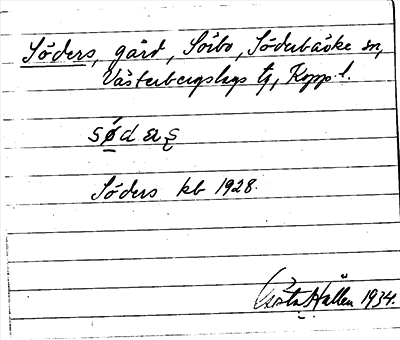 Söders, gård, Sörbo, Söderbärke sn,
Västerbergslags tg, Kopp. l.
Söders kb 1928.
Gösta Hallén 1934.